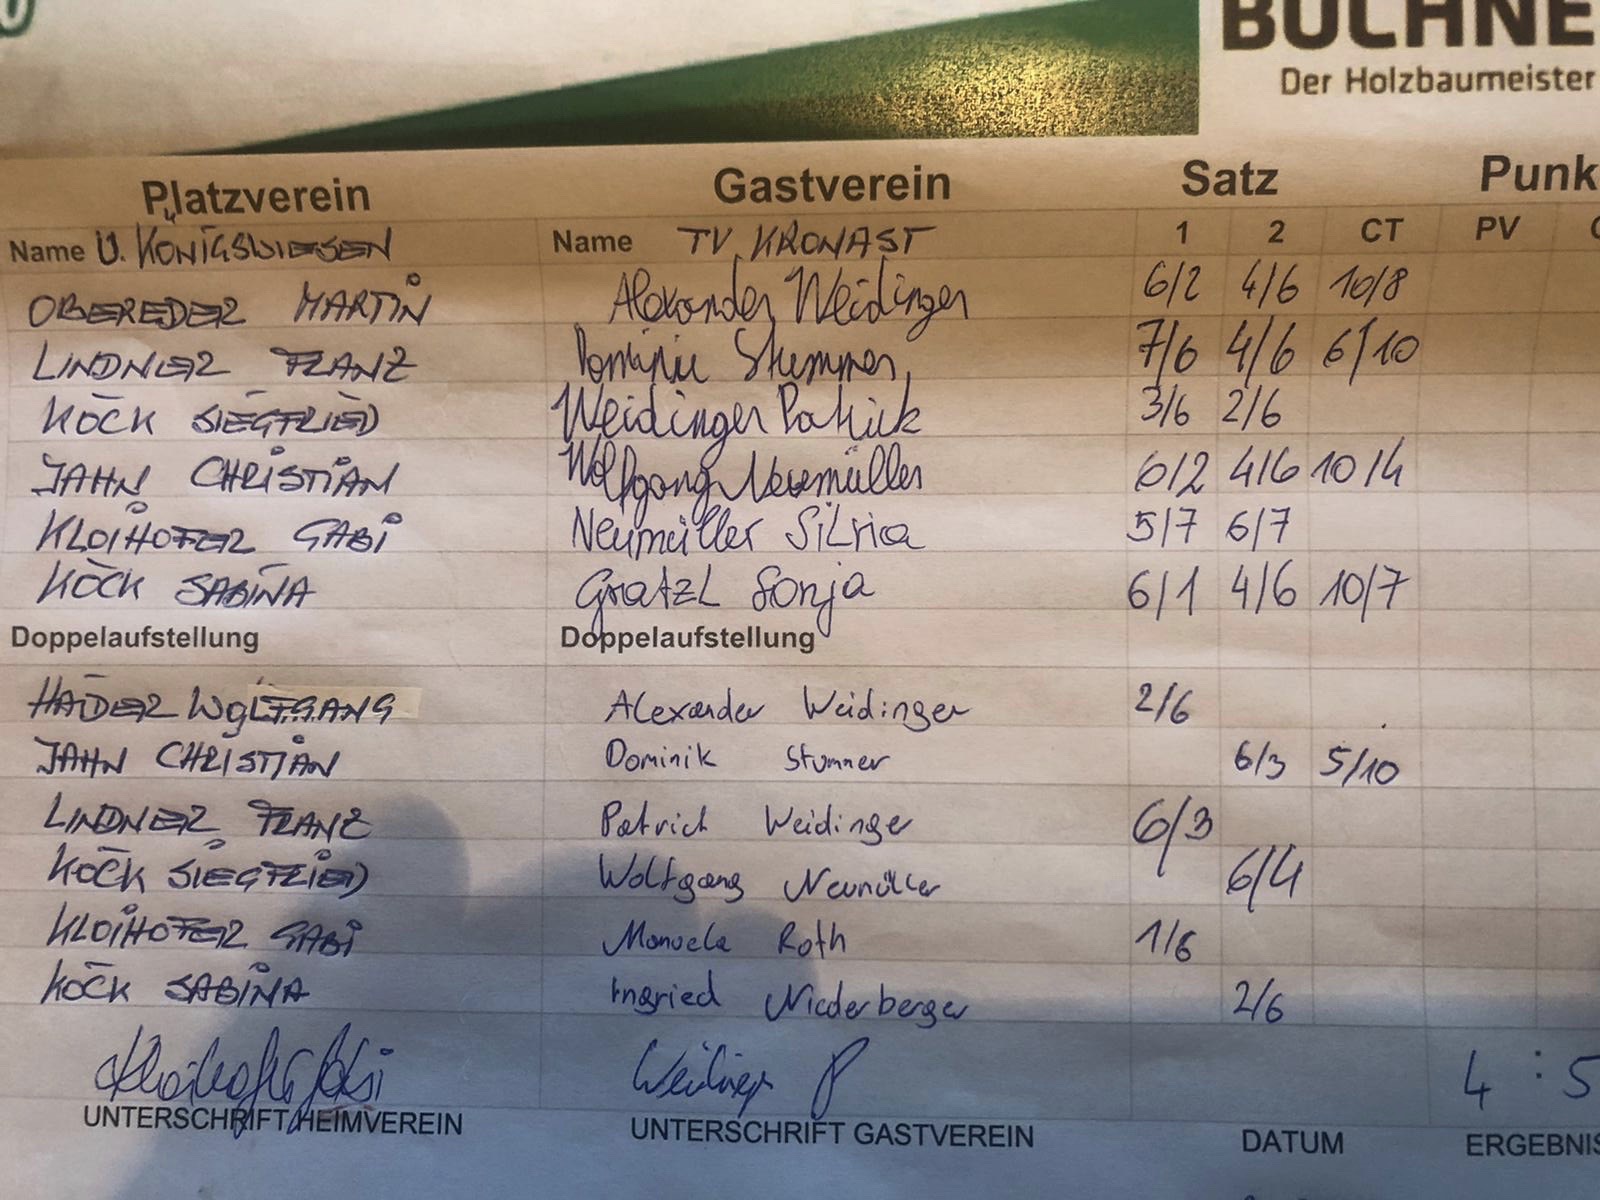 BUCHNE
Der Holzbaumeister
Platzverein Gastverein Satz Punk
Name U. KÖNIGSWIESEN Name TV KRONAST 1 2 CT PV
OBEREDER MARTIN Alexander Weidinger 6/2 4/6 10/8
LINDNER FRANZ Dominic Stummer 7/6 4/6 6/10
KÖCK SIEGFRIED Weidinger Patrick 3/6 2/6
JAHN CHRISTIAN Wolfgang Neumüller 6/2 4/6 10/4
KLOIHOFER GABI Neumüller Silvia 5/7 6/7
KÖCK SABINA Gratzl Sonja 6/1 4/6 10/7
Doppelaufstellung Doppelaufstellung
HAIDER WOLFGANG Alexander Weidinger 2/6
JAHN CHRISTIAN Dominik Stummer 6/3 5/10
LINDNER FRANZ Patrick Weidinger 6/3
KÖCK SIEGFRIED Wolfgang Neumüller 6/4
KLOIHOFER GABI Manuela Roth 1/6
KÖCK SABINA Ingried Niederberger 2/6
Kloihofer Gabi Weidinger P 4 : 5
UNTERSCHRIFT HEIMVEREIN UNTERSCHRIFT GASTVEREIN DATUM ERGEBNIS